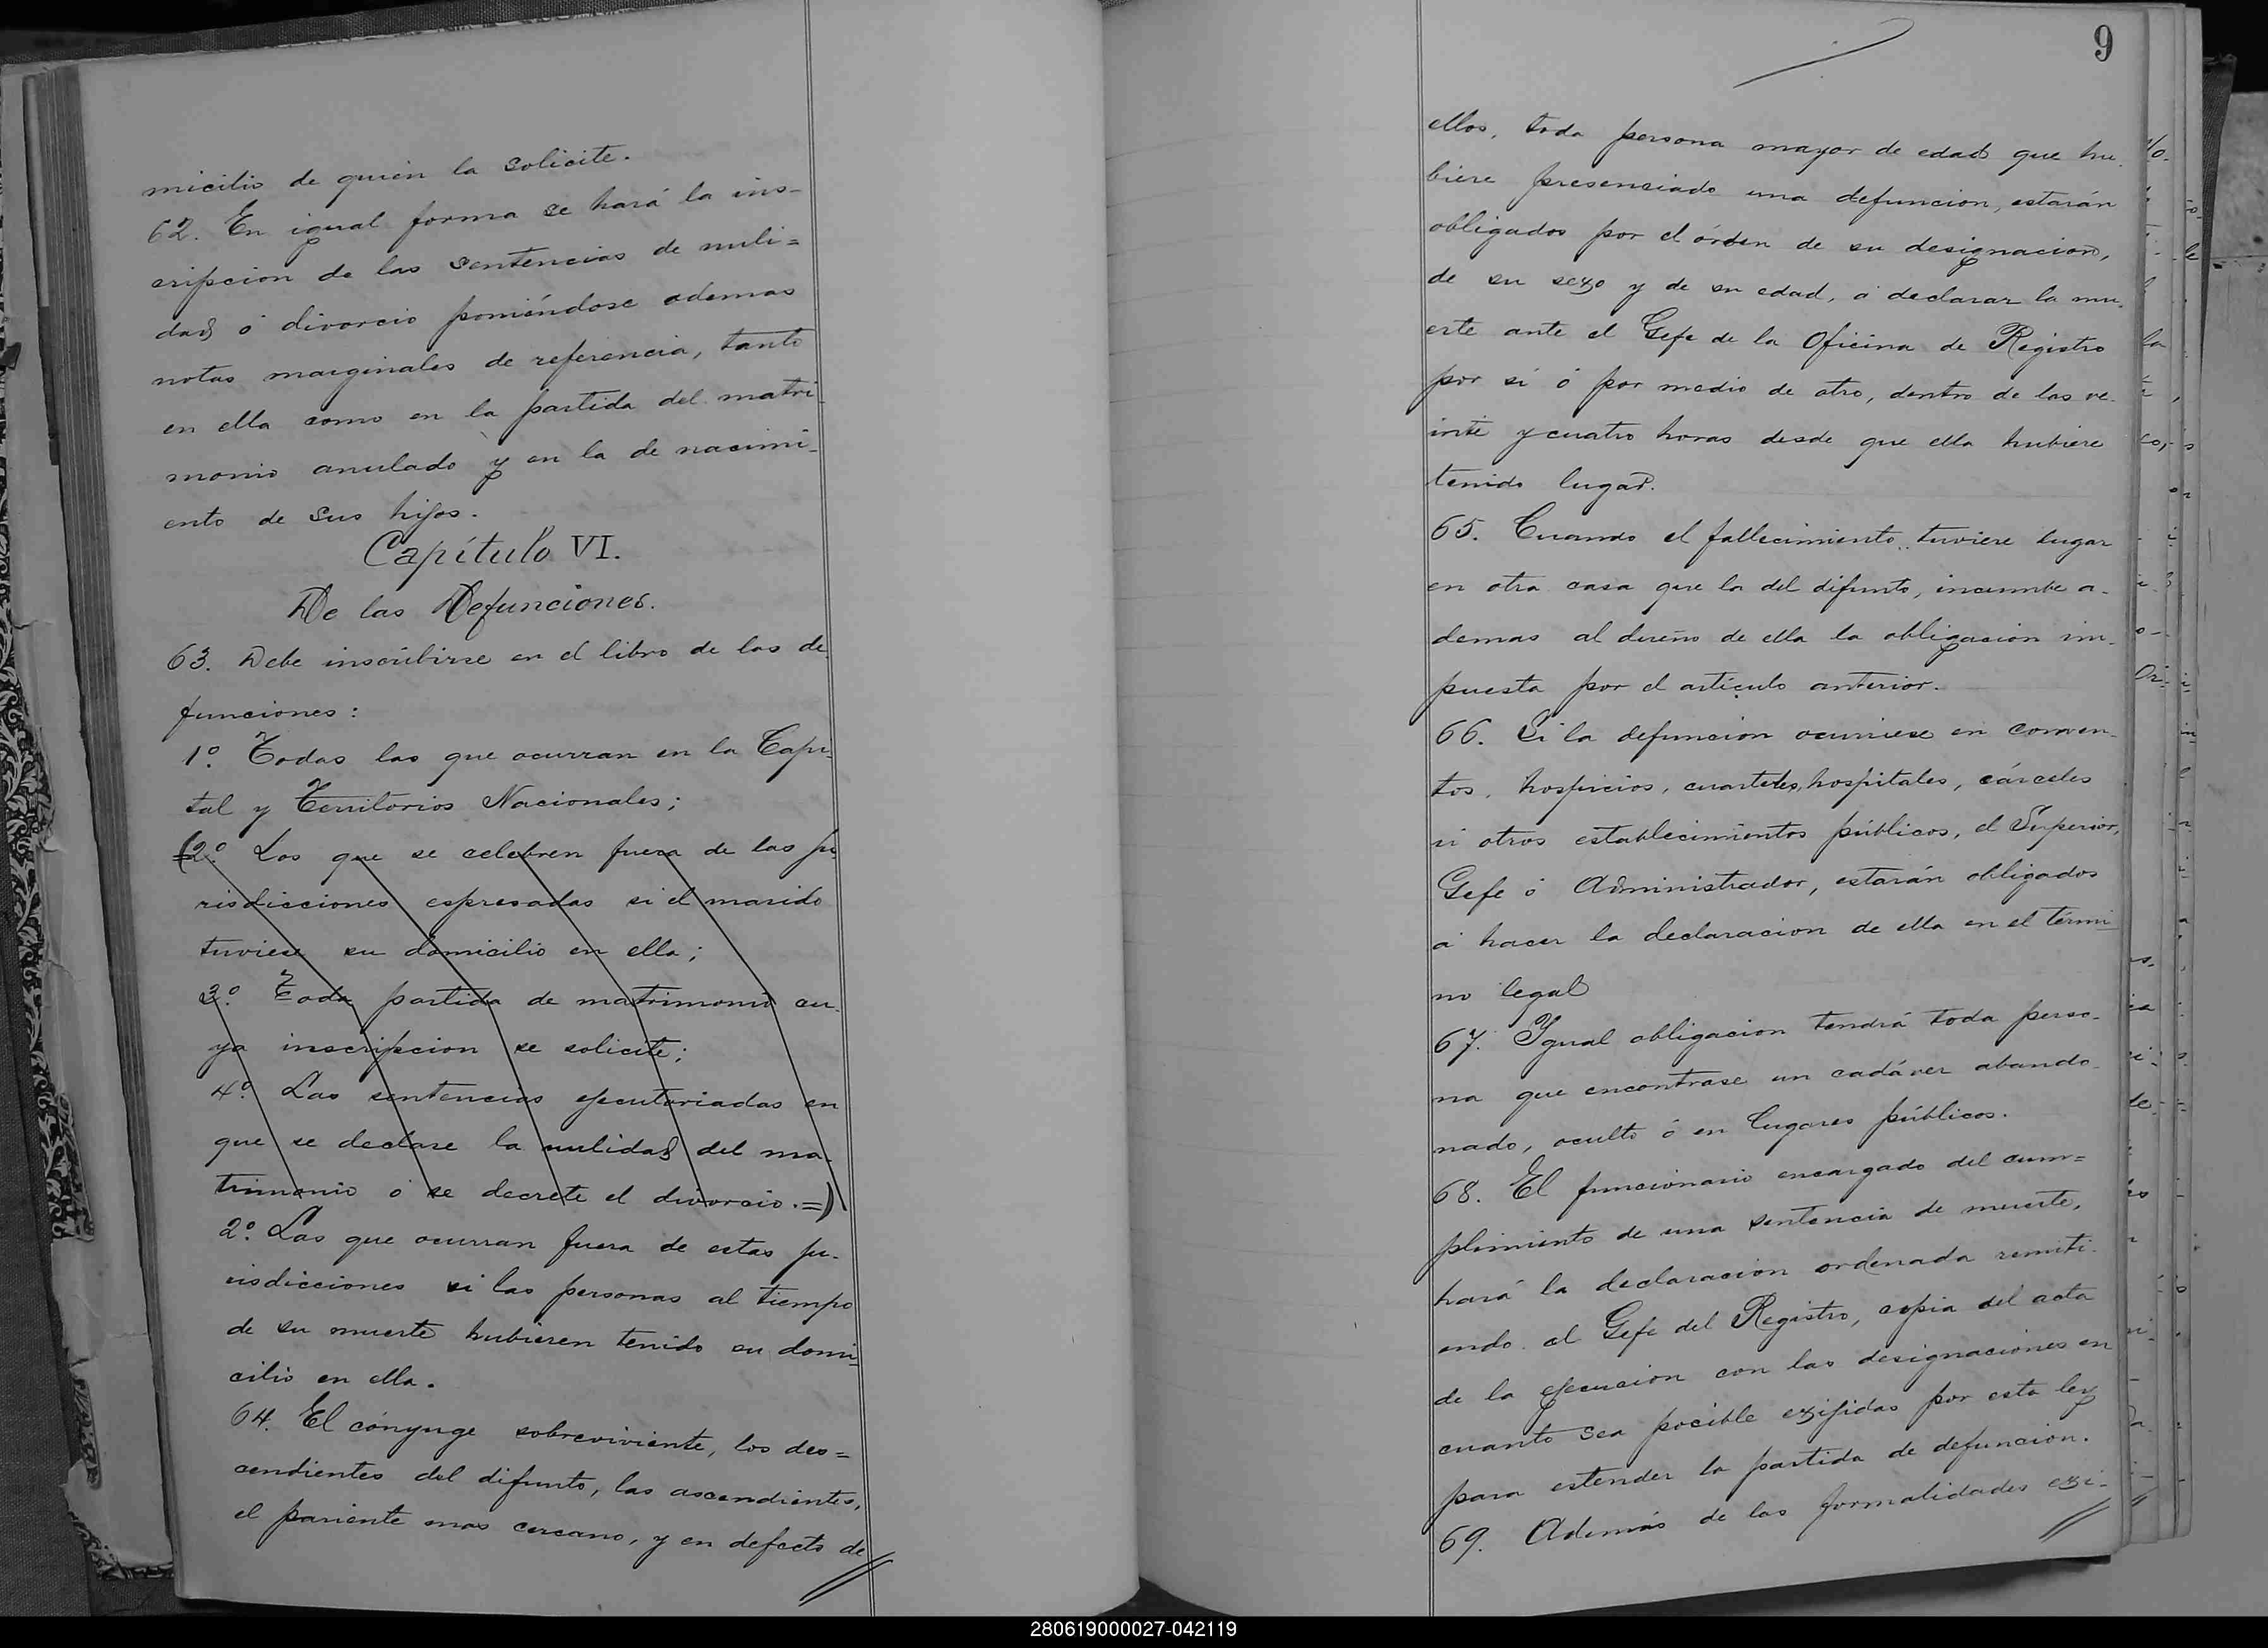 micilio de quien la solicite.
62. En igual forma se hará la ins-
cripcion de las sentencias de nuli=
dad ó divorcio poniéndose ademas
notas marginales de referencia, tanto
en ella como en la partida del matri-
monio anulado y en la de nacimi-
ento de sus hijos.
Capítulo VI.
De las Defunciones.
63. Debe inscribirse en el libro de las de-
funciones:
1º. Todas las que ocurran en la Capi-
tal y Territorios Nacionales;
(2º. Los que se celebren fuera de las ju-
risdicciones espresadas si el marido
tuviese su domicilio en ella;
3º. Toda partida de matrimonio cu-
ya inscripcion se solicite;
4º. Las sentencias ejecutoriadas en
que se declare la nulidad del ma-
trimonio ó se decrete el divorcio.=)
2º. Las que ocurran fuera de estas ju-
risdicciones si las personas al tiempo
de su muerte hubieren tenido su domi-
cilio en ella.
64. El cónyuge sobreviviente, los des=
cendientes del difunto, las ascendientes,
el pariente mas cercano, y en defecto de
9
ellos, toda persona mayor de edad que hu-
biere presenciado una defuncion, estarán
obligados por el órden de su designacion,
de su sexo y de su edad, á declarar la mu-
erte ante el Gefe de la Oficina de Registro
por sí ó por medio de otro, dentro de las ve-
inte y cuatro horas desde que ella hubiere
tenido lugar.
65. Cuando el fallecimiento tuviere lugar
en otra casa que la del difunto, incumbe a-
demas al dueño de ella la obligacion im-
puesta por el artículo anterior.
66. Si la defuncion ocurriese en conven-
tos, hospicios, cuarteles, hospitales, cárceles
ú otros establecimientos públicos, el Superior,
Gefe ó Administrador, estarán obligados
á hacer la declaracion de ella en el térmi
no legal
67. Igual obligacion tendrá toda perso-
na que encontrase un cadáver abando-
nado, oculto ó en lugares públicos.
68. El funcionario encargado del cum=
plimiento de una sentencia de muerte,
hará la declaracion ordenada remiti-
endo al Gefe del Registro, copia del acta
de la ejecucion con las designaciones en
cuanto sea pocible exijidas por esta ley
para estender la partida de defuncion.
69. Además de las formalidades exi-
280619000027-042119